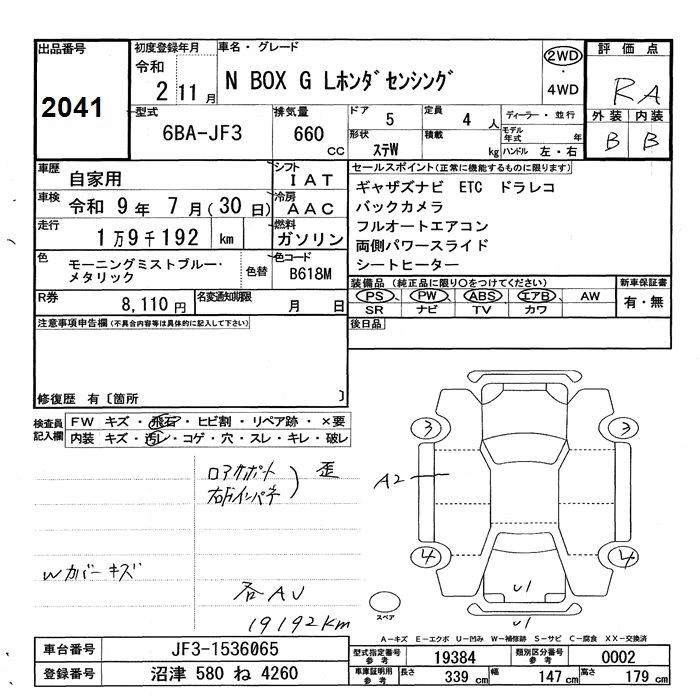 出品番号
2041
初度登録年月
令和
2 11月
車名・グレード
N BOX G Lホンダセンシング
2WD
・
4WD
評価点
RA
外装 内装
B B
型式
6BA-JF3
排気量
660
CC
ドア
5
定員
4 人
形状
ステW
積載
kg
ディーラー・並行
モデル年式 年
ハンドル 左・右
車歴
自家用
シフト
IAT
車検
令和 9年 7月(30日)
冷房
AAC
走行
1万9千192 km
燃料
ガソリン
色
モーニングミストブルー・
メタリック
色替
色コード
B618M
R券
8,110円
名変通知期限
月 日
セールスポイント(正常に機能するものに限ります)
ギャザズナビ ETC ドラレコ
バックカメラ
フルオートエアコン
両側パワースライド
シートヒーター
装備品 (純正品に限り○をつけてください)
PS PW ABS エアB AW
SR ナビ TV カワ
新車保証書
有・無
後日品
注意事項申告欄(不具合内容等は具体的に記入して下さい)
修復歴 有〔箇所 〕
検査員
記入欄
FW キズ・飛石・ヒビ割・リペア跡・×要
内装 キズ・汚レ・コゲ・穴・スレ・キレ・破レ
ロアサポート
右ドインパネ
) 歪
Wカバーキズ
各AU
19192km
3 3
A2
4 4
U1
U1
スペア
A－キズ E－エクボ U－凹み W－補修跡 S－サビ C－腐食 XX－交換済
車台番号
JF3-1536065
登録番号
沼津 580 ね 4260
型式指定番号
参考
19384
類別区分番号
参考
0002
車庫証明用
参考
長さ
339 cm
幅
147 cm
高さ
179 cm